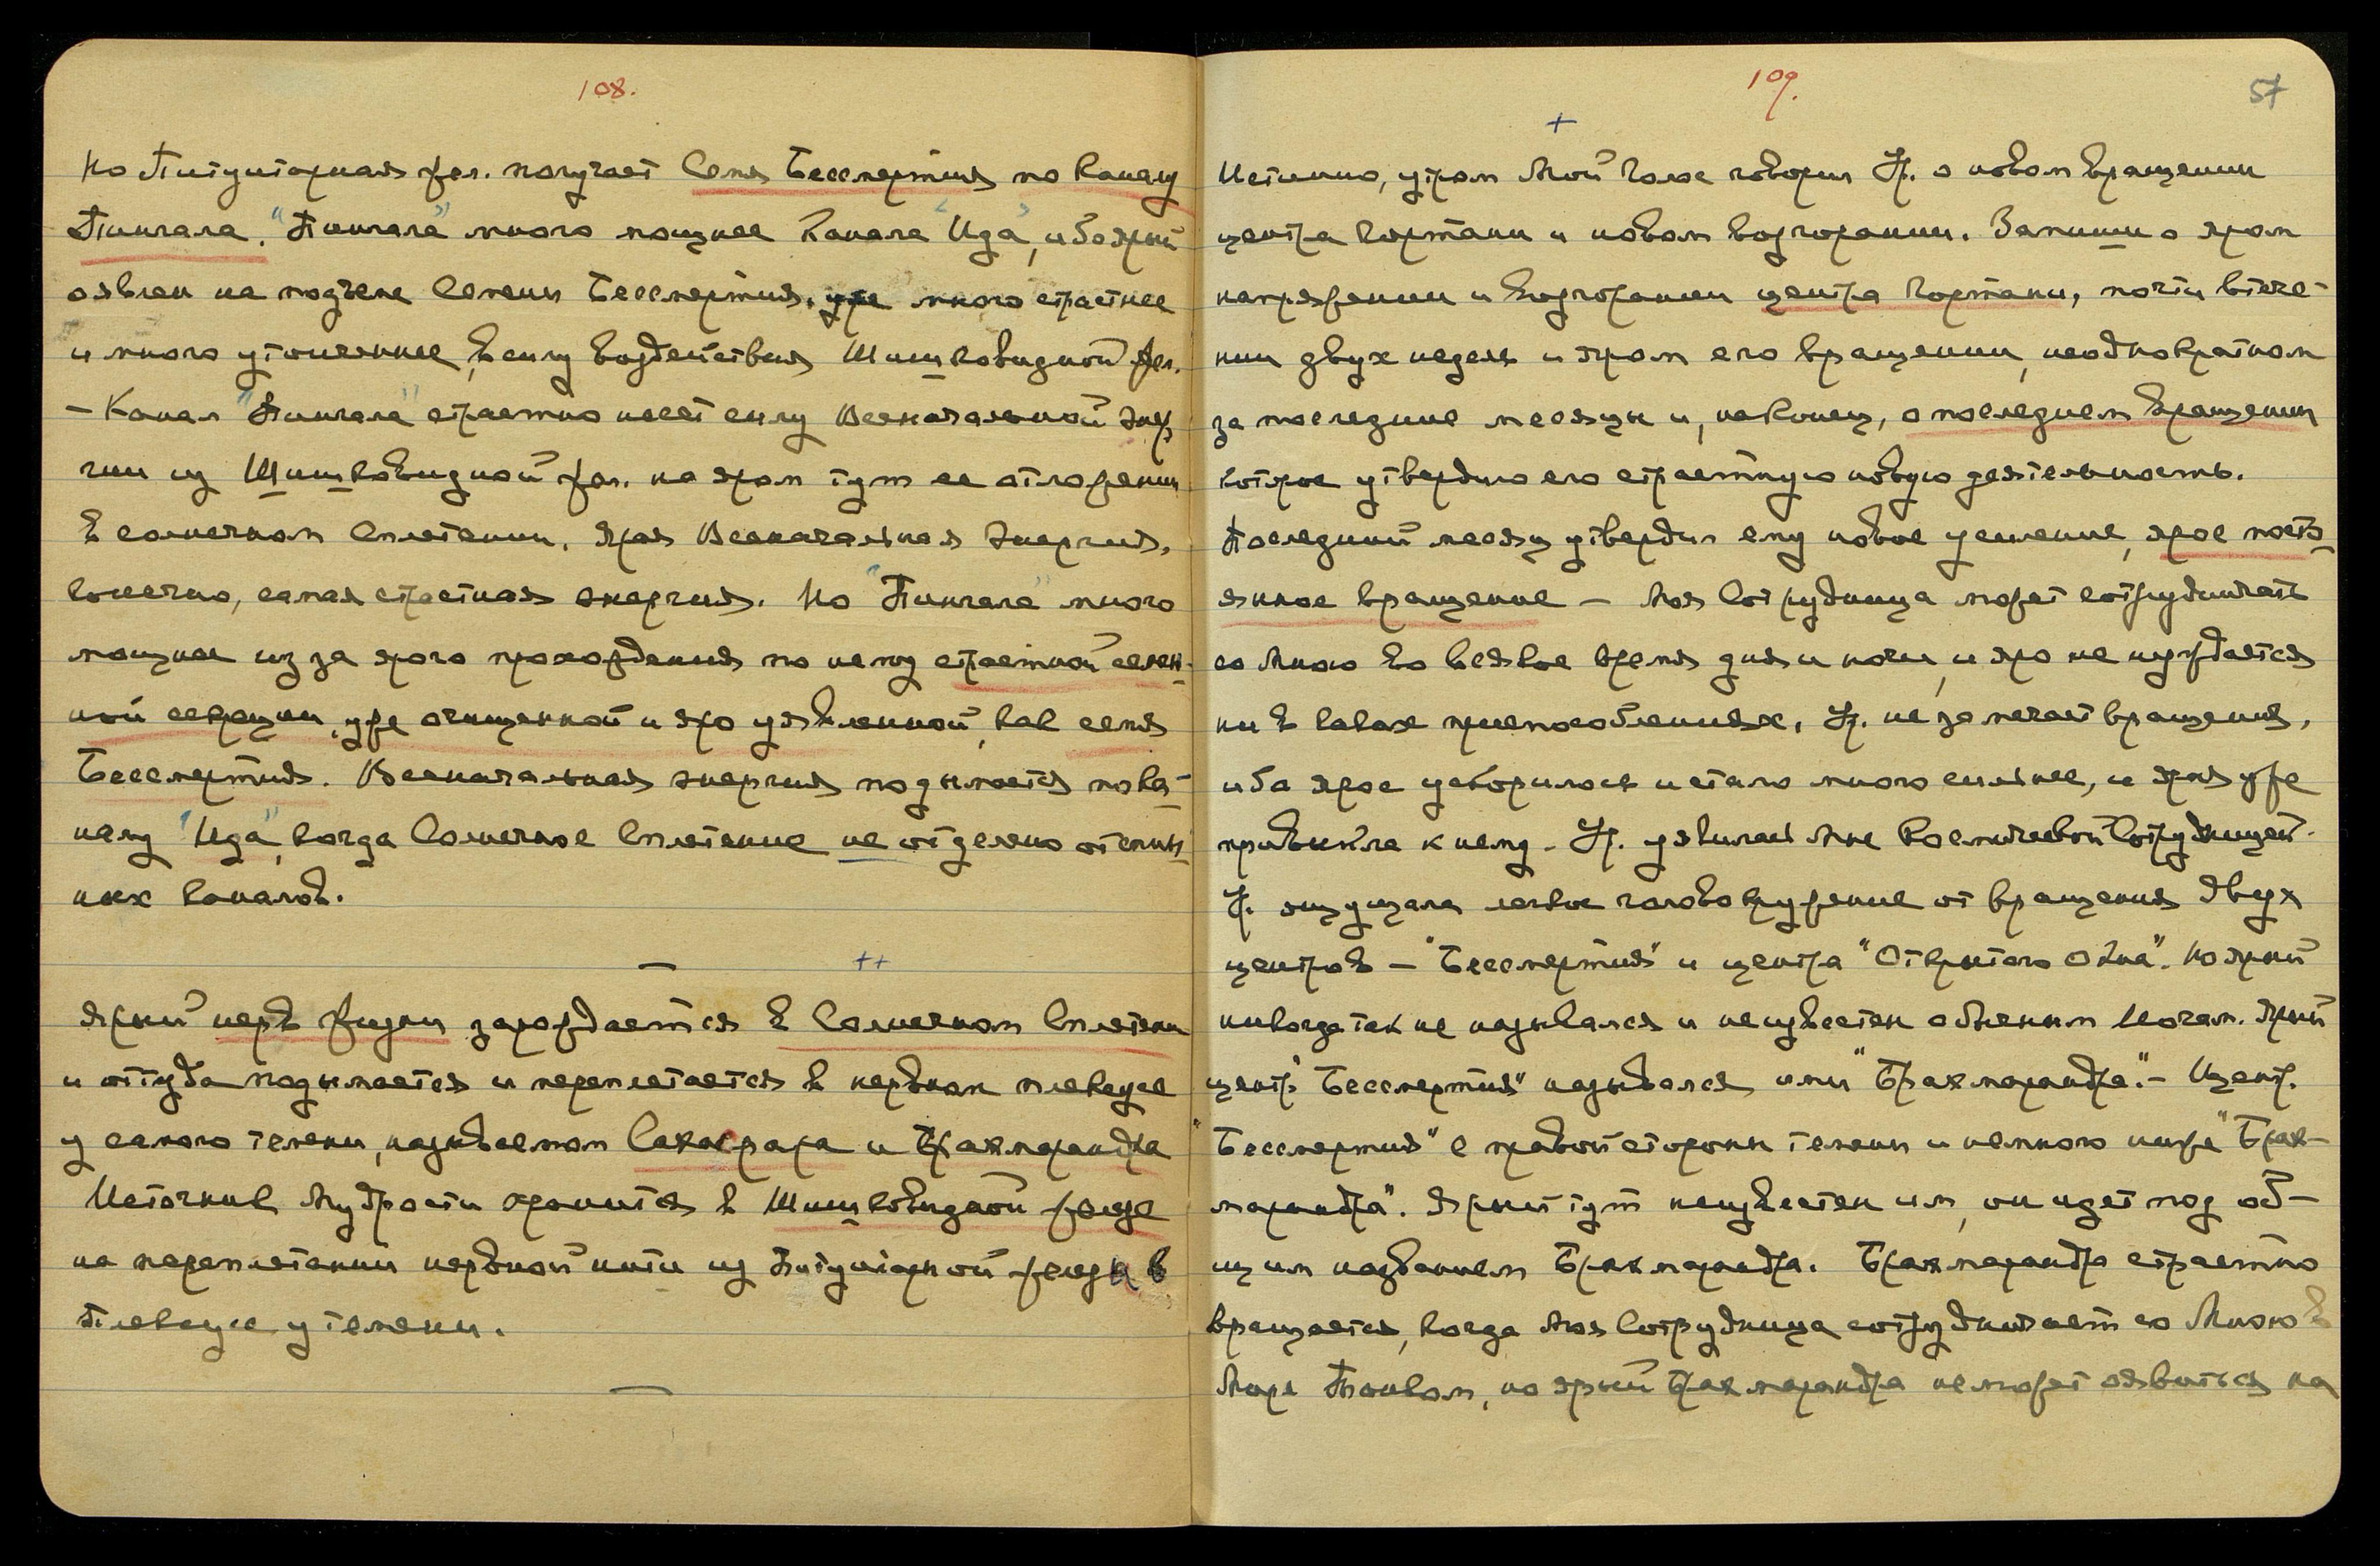 108.
Но Питуитарная жел. получает Семя Бессмертия по Каналу
Пингала. "Пингала" много мощнее Канала "Ида", ибо ярый
оявлен на подъеме Семени Бессмертия, уже много страстнее
и много утонченнее, в силу воздействия Шишковидной жел.
– Канал "Пингала" страстно несет силу Всеначальной Энер
гии из Шишковидной жел. на яром тут ее отложении
в солнечном Сплетении. Ярая Всеначальная Энергия,
конечно, самая страстная энергия. Но "Пингала" много
мощнее из за ярого прохождения по нему страстной семен-
ной секреции, уже очищенной и яро уявленной, как семя
Бессмертия. Всеначальная энергия подымается по ка-
налу "Ида", когда Солнечное Сплетение не отделено от спин-
ных каналов.
++
Ярый нерв жизни зарождается в Солнечном Сплетении
и оттуда подымается и переплетается в нервном плексусе
у самого темени, называемом Сахасрара и Брахмарандра
Источник Мудрости хранится в Шишковидной железе
на переплетении нервной нити из Питуитарной железы в
Плексусе у темени.
109.
57
+
Истинно, утром Мой Голос говорил Ур. о новом вращении
центра Гортани и новом возгорании. Запиши о яром
напряжении и возгорании центра Гортани, почти в тече-
нии двух недель и яром его вращении, неоднократном
за последние месяцы и, наконец, о последнем вращении
которое утвердило его страстную новую деятельность.
Последний месяц утвердил ему новое усиление, ярое посто-
янное вращение – Моя Сотрудница может сотрудничать
со Мною во всякое время дня и ночи, и яро не нуждается
ни в каких приспособлениях. Ур. не замечает вращения,
ибо ярое ускорилось и стало много сильнее, и яря уже
привыкла к нему. Ур. уявилась Мне Космической Сотрудницей.
Ур. ощущала легкое головокружение от вращения двух
центров – "Бессмертия" и центра "Открытого Окна". Но ярый
никогда так не назывался и неизвестен обычным Йогам. Ярый
центр "Бессмертия" назывался ими "Брахмарандра". – Центр.
"Бессмертия" с правой стороны темени и немного ниже "Брах-
марандра". Ярый тут неизвестен им, он идет под об-
щим названием Брахмарандра. Брахмарандра страстно
вращается, когда Моя Сотрудница сотрудничает со Мною в
Мире Тонком, но ярый Брахмарандра не может оявиться на